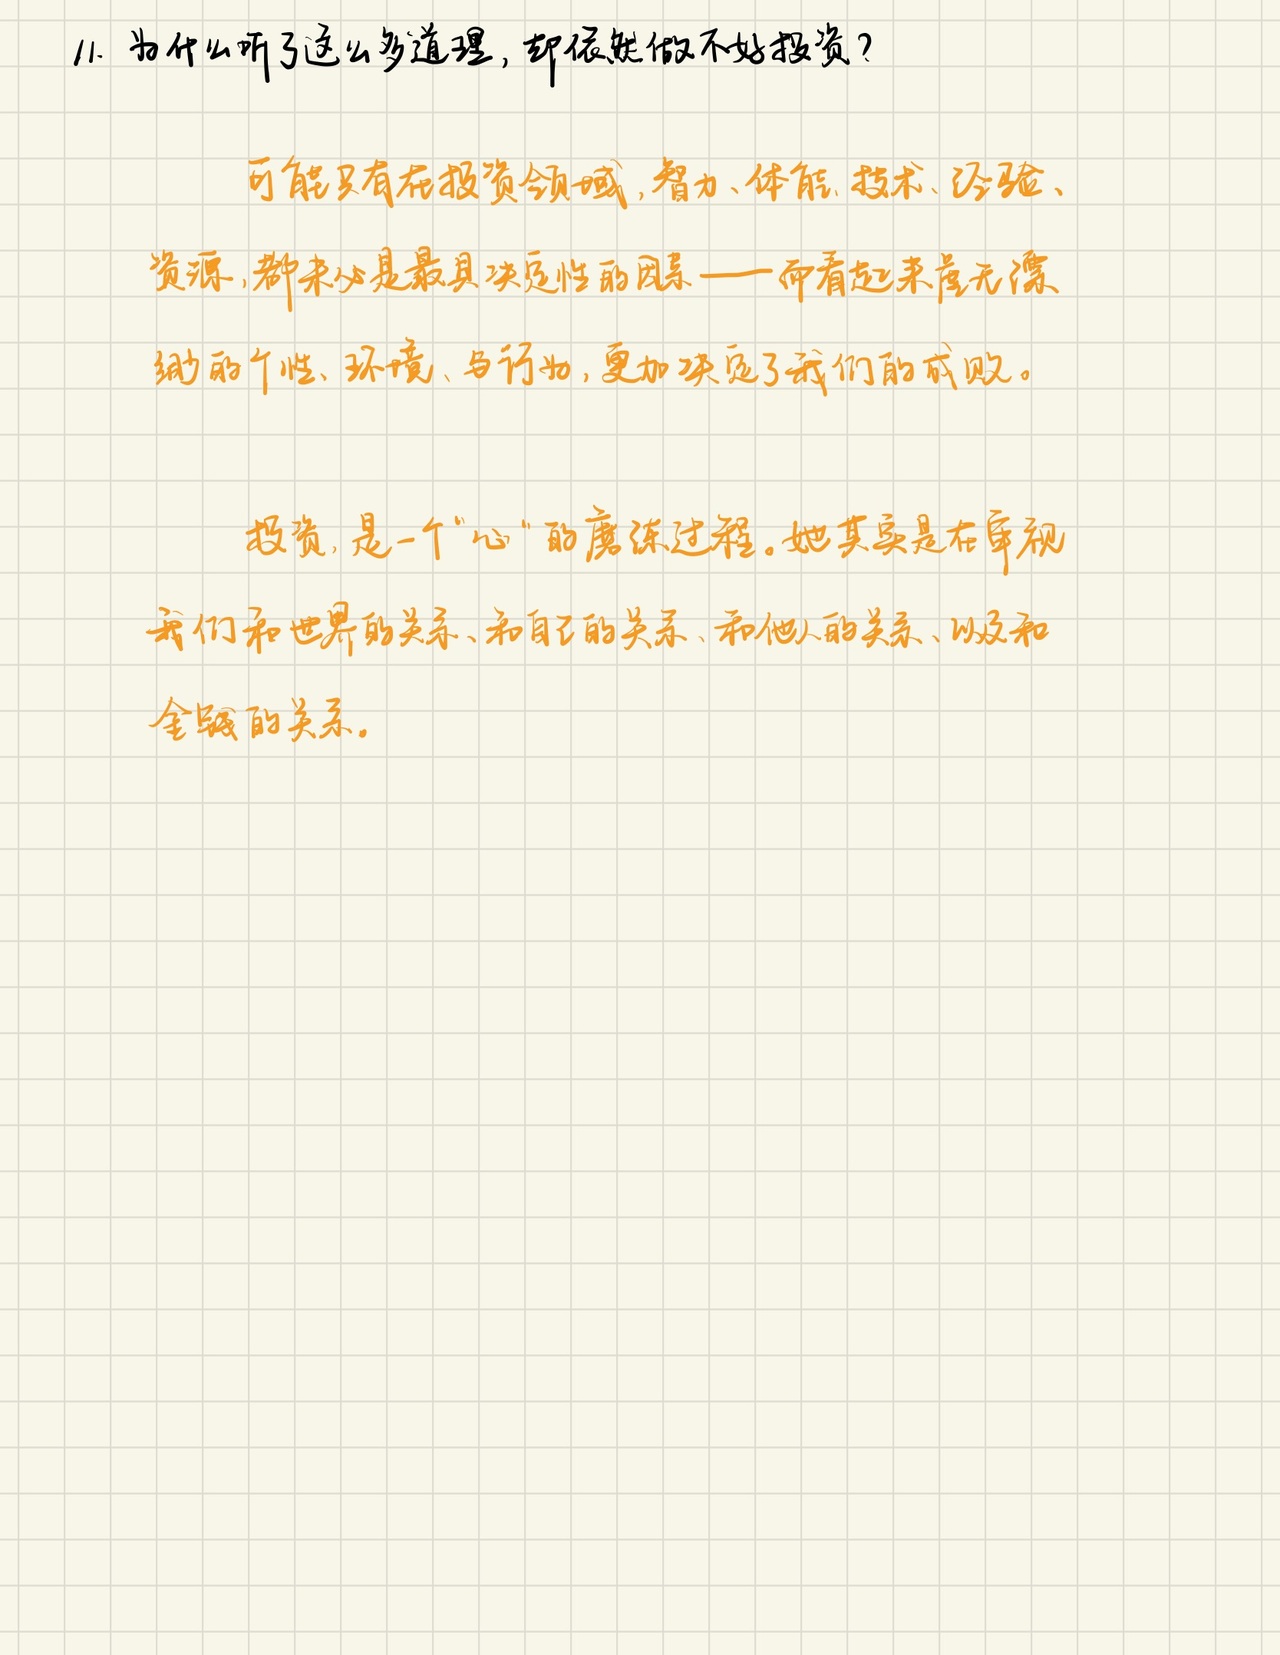 11. 为什么听了这么多道理,却依然做不好投资?
可能只有在投资领域,智力、体能、技术、经验、
资源,都未必是最具决定性的因素——而看起来虚无漂
缈的个性、环境、与行为,更加决定了我们的成败。
投资,是一个“心”的磨练过程。她其实是在审视
我们和世界的关系、和自己的关系、和他人的关系、以及和
金钱的关系。